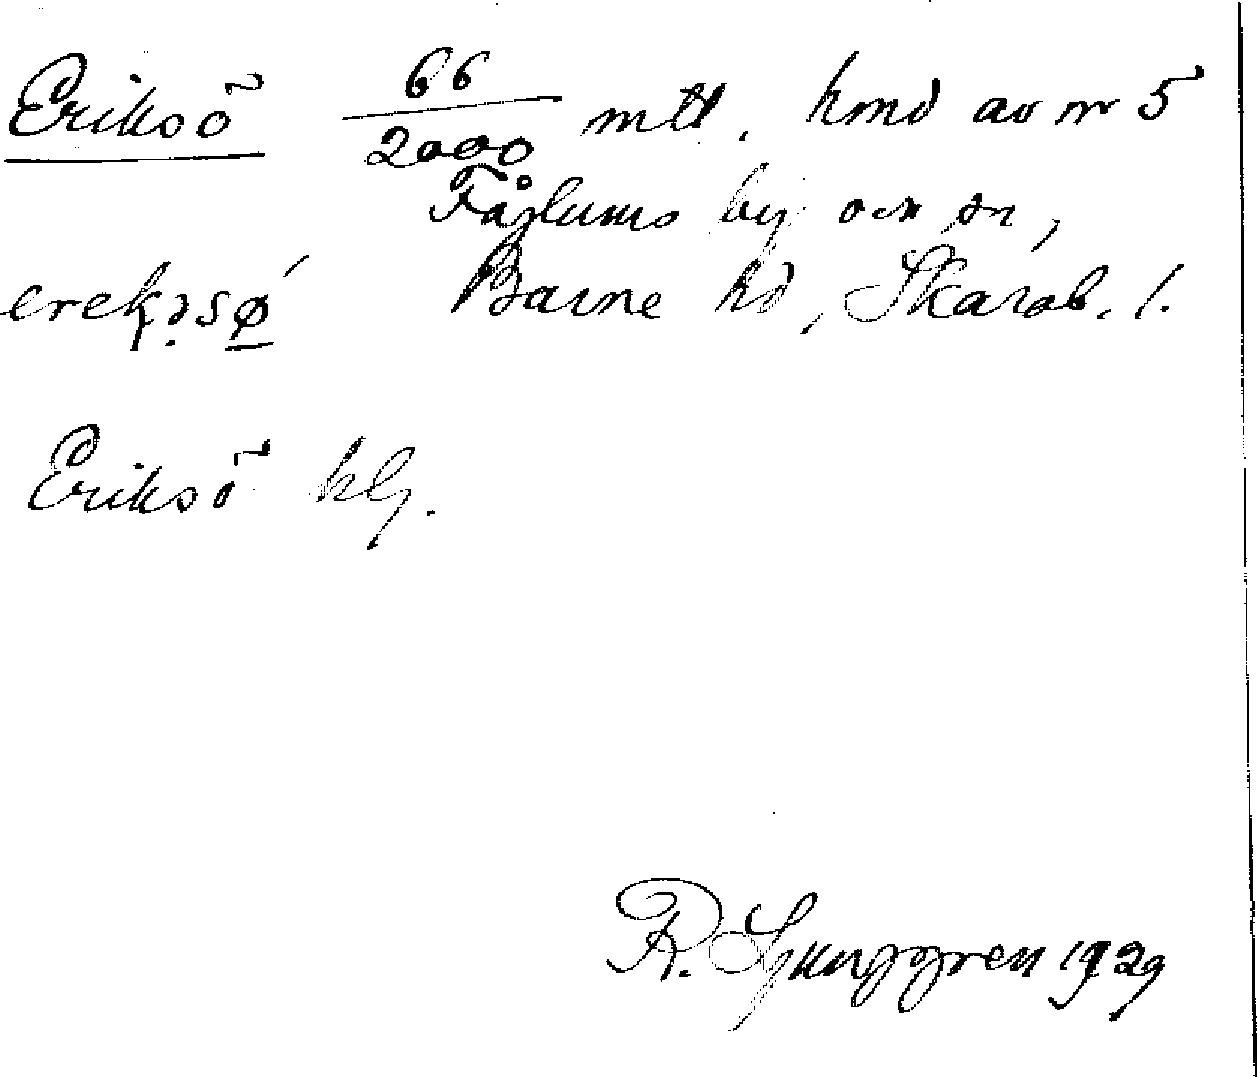 Eriksö 66/2000 mtl. hmd av nr 5
Fåglums by och sn,
Barne hd, Skarab. l.
erekəsø
Eriksö klg.
R. Ljunggren 1929